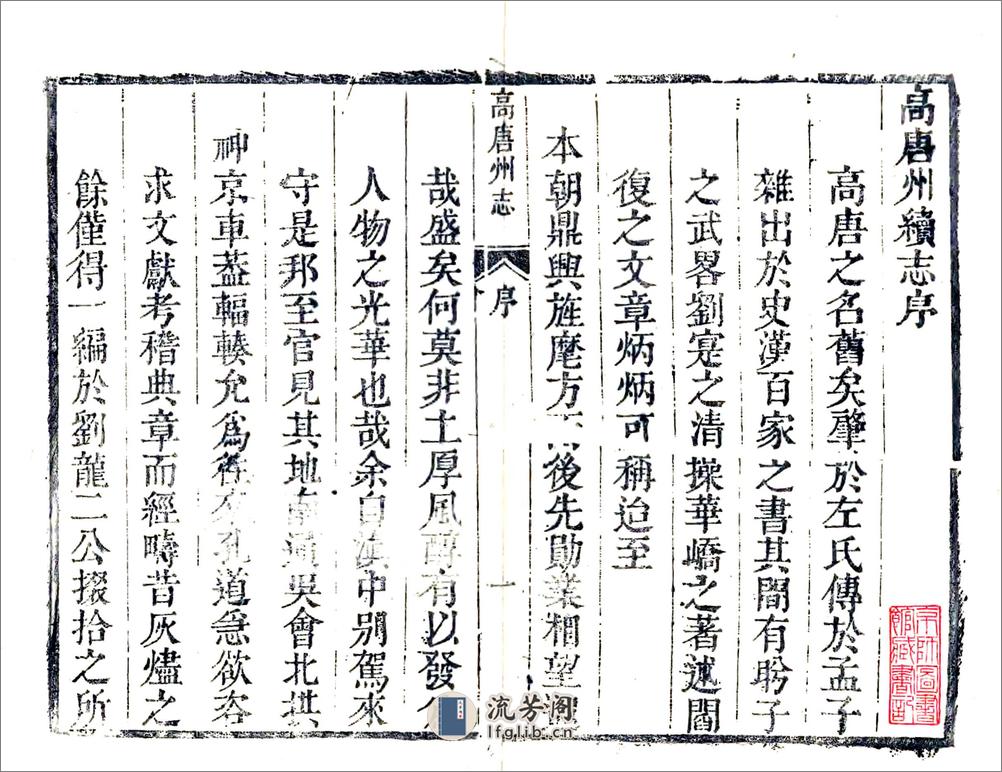 高唐州續志序
高唐之名舊矣肇於左氏傳於孟子
雜出於史漢百家之書其間有盻子
之武畧劉寔之清操華嶠之著述閻
復之文章炳炳可稱迨至
本朝鼎興旌麾方 後先勛業相望
高唐州志
序
一
哉盛矣何莫非土厚風醇有以發
人物之光華也哉余自滇中别駕來
守是邦至官見其地南通吳會北拱
神京車葢輻輳允爲徃來孔道急欲咨
求文獻考稽典章而經疇昔灰燼之
餘僅得一編於劉龍二公掇拾之所
京師圖書館藏書記
流芳阁
lfglib.cn